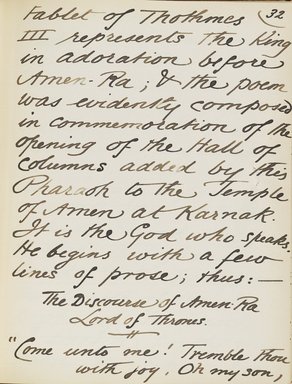 32
Tablet of Thothmes
III represents the King
in adoration before
Amen-Ra; & the poem
was evidently composed
in commemoration of the
opening of the Hall of
columns added by this
Pharaoh to the Temple
of Amen at Karnak.
It is the God who speaks.
He begins with a few
lines of prose; thus:—
The Discourse of Amen-Ra
Lord of Thrones.
"Come unto me! Tremble thou
with joy, Oh my son,